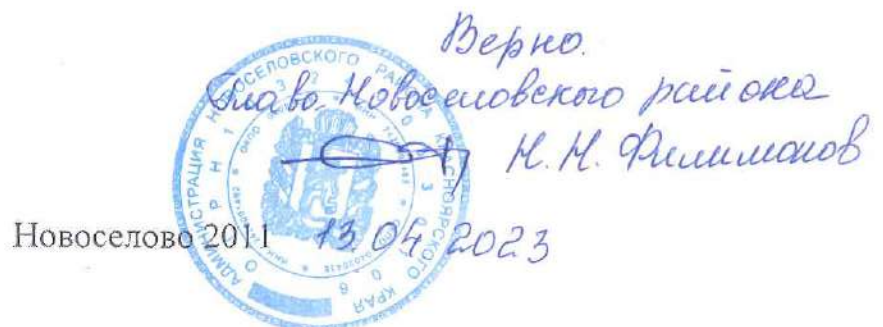 Верно.
Глава Новоселовского района
Н.Н. Филимонов
Новоселово 2011 13.04.2023
АДМИНИСТРАЦИЯ НОВОСЕЛОВСКОГО РАЙОНА КРАСНОЯРСКОГО КРАЯ